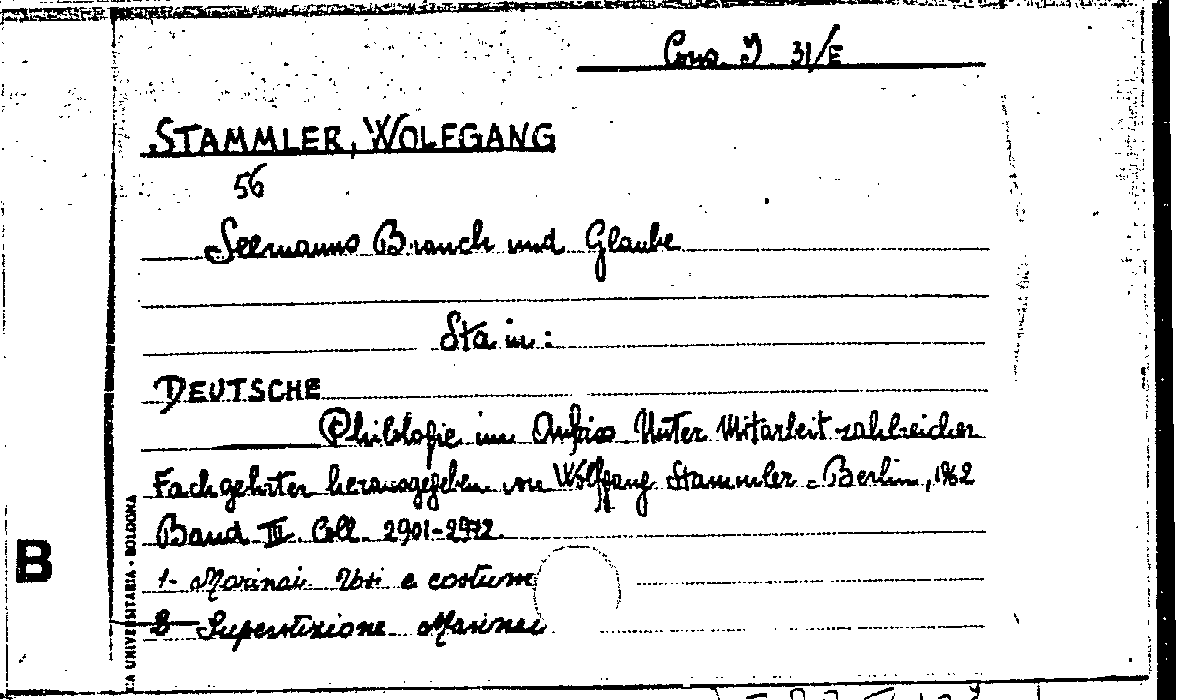 Cons. I 31/E
STAMMLER, WOLFGANG
56
Seemanns Brauch und Glaube
Sta in:
DEUTSCHE
Philologie im Aufriss Unter Mitarbeit zahlreicher
Fachgehrter herausgegeben von Wolfgang Stammler - Berlin, 1962
Band III. Coll. 2901-2972.
1- Marinai Usi e costumi
2- Superstizione Marinai
B
CA UNIVERSITARIA • BOLOGNA